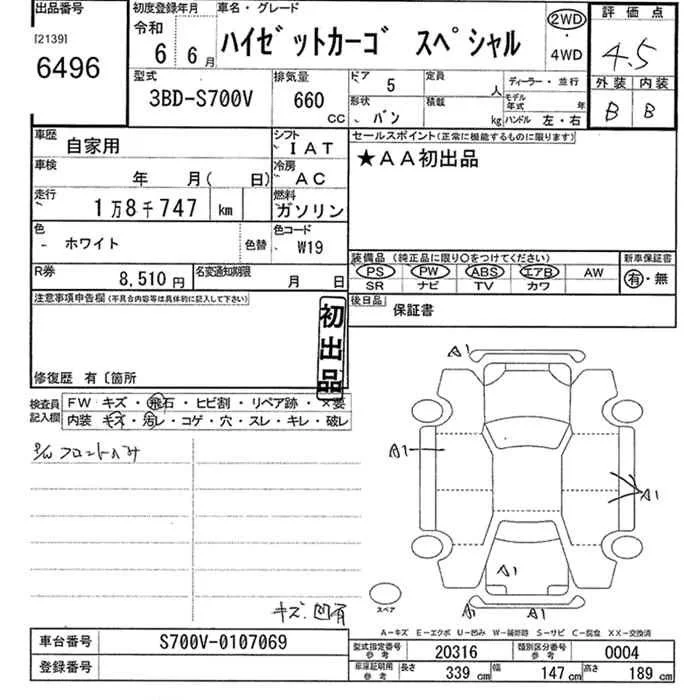 出品番号
[2139]
6496
初度登録年月
令和
6 6月
車名・グレード
ハイゼットカーゴ スペシャル
2WD
・
4WD
評価点
4.5
外装 内装
B B
型式
3BD-S700V
排気量
660
CC
ドア 5
定員 人
形状 バン
積載 kg
ディーラー・並行
モデル年式 年
ハンドル 左・右
車歴 自家用
シフト IAT
車検 年 月( 日)
冷房 AC
走行 1万8千747 km
燃料 ガソリン
色 - ホワイト 色替
色コード W19
R券 8,510円
名変通知期限 月 日
セールスポイント(正常に機能するものに限ります)
★AA初出品
装備品 (純正品に限り〇をつけてください)
PS PW ABS エアB AW
SR ナビ TV カワ
新車保証書
有・無
後日品 保証書
注意事項申告欄 (不具合内容等は具体的に記入して下さい)
初出品
修復歴 有 〔箇所
検査員記入欄
FW キズ・飛石・ヒビ割・リペア跡・×要
内装 キズ・汚レ・コゲ・穴・スレ・キレ・破レ
キズ 凹有
A1
A1
A1
A1
A1
スペア
A-キズ E-エクボ U-凹み W-補修跡 S-サビ C-腐食 XX-交換済
車台番号 S700V-0107069
登録番号
型式指定番号 参考 20316
類別区分番号 参考 0004
車庫証明用 参考 長さ 339 cm 幅 147 cm 高さ 189 cm